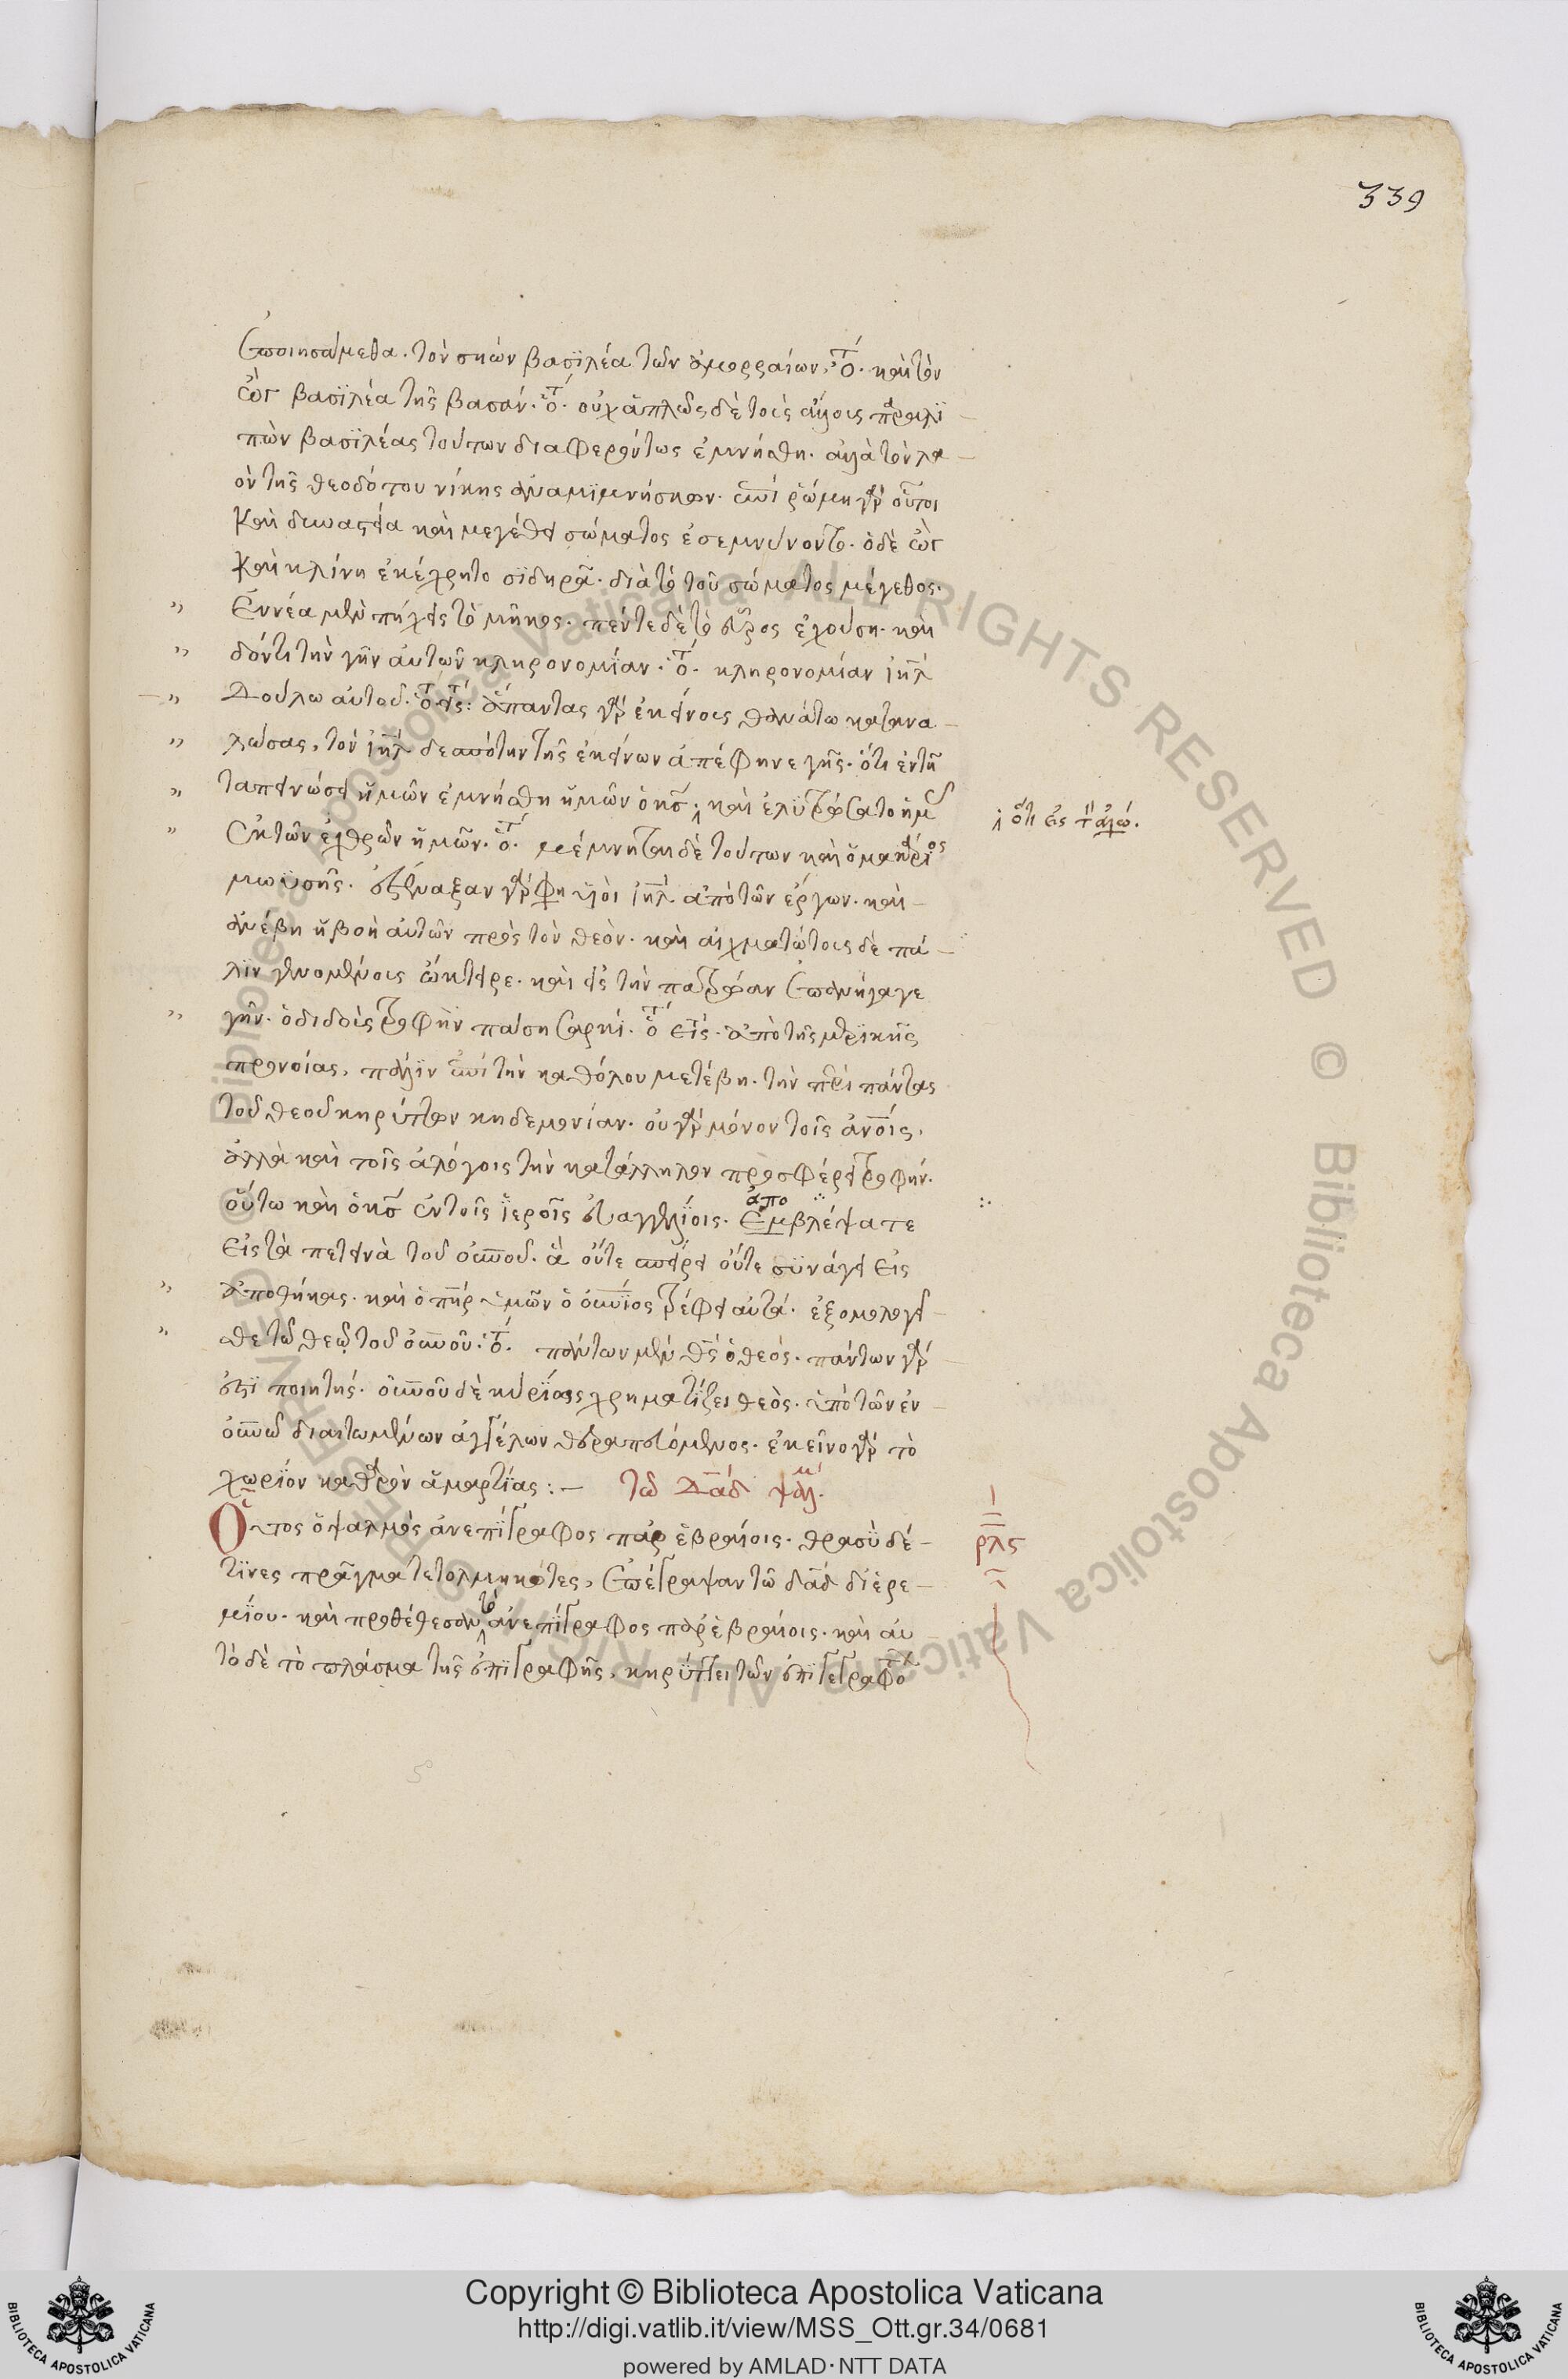 339
ἐποιησάμεθα. τὸν σηὼν βασϊλέα τῶν ἀμορραίων, ὅτι. καὶ τὸν
ὢγ βασϊλέα τῆς βασάν. ὅτι. οὐχ ἁπλῶς δὲ τοὺς ἄλλους παραλι
πὼν βασϊλέας τούτων διαφερόντως ἐμνήσθη. ἀλλὰ τὸν λα
ὸν τῆς θεοδότου νίκης ἀναμϊμνήσκων. ἐπὶ ῥώμη γὰρ οὗτοι
καὶ δυναστεία καὶ μεγέθει σώματος ἐσεμνύνοντο. ὁ δὲ ὢγ
καὶ κλίνη ἐκέχρητο σϊδηρᾶ. διὰ τὸ τοῦ σώματος μέγεθος.
ἐννέα μὲν πήχεις τὸ μῆκος. πέντε δὲ τὸ εὖρος ἐχούση. καὶ
δόντι τὴν γῆν αὐτῶν κληρονομϊαν. ὅτι. κληρονομίαν ιηλ
δούλω αὐτοῦ. ἅπαντας γὰρ ἐκείνους θανάτω καταανα
λώσας, τὸν ιηλ δεσπότην τῆς ἐκείνων ἀπέφηνε γῆς. ὅτι ἐν τῆ
ταπεινώσει ἡμῶν ἐμνήσθη ἡμῶν ὁ κς καὶ ἐλϋτρώσατο ἡμᾶς
ὅτι εἰς τ αἰῶ.
ἐκ τῶν ἐχθρῶν ἡμῶν. ὅτι. μέμνηται δὲ τούτων καὶ ὁ μακάριος
μωϋσῆς. ἐστέναξαν γὰρ φη υἱοὶ ιηλ ἀπὸ τῶν ἔργων. καὶ
ἀνέβη ἡ βοὴ αὐτῶν πρὸς τὸν θεόν. καὶ αἰχμαλώτους δὲ πά
λϊν γενομένους ὤκτειρε. καὶ εἰς τὴν πατρώαν ἐπανήγαγε
γῆν. ὁ διδοὺς τροφὴν πάση σαρκί. ἀπὸ τῆς μερϊκῆς
προνοίας, πάλϊν ἐπὶ τὴν καθόλου μετέβη. τὴν περὶ πάντας
τοῦ θεοῦ κηρύττων κηδεμονίαν. οὐ γὰρ μόνον τοῖς ἀνοις,
ἀλλὰ καὶ τοῖς ἀλόγοις τὴν κατάλληλον προσφέρει τροφήν.
οὕτω καὶ ὁ κς ἐν τοῖς ϊεροῖς εὐαγγελϊοις. ἐμβλέψατε
ἀπο
εἰς τὰ πετεινὰ τοῦ οὐνοῦ. ἃ οὔτε σπείρει οὔτε συνάγει εἰς
ἀποθήκας. καὶ ὁ πηρ ὑμῶν ὁ οὐνϊος τρέφει αὐτά. ἐξομολογεῖ
σθε τῶ θεῶ τοῦ οὐνοῦ. ὅτι. πάντων μὲν θς ὁ θεός. πάντων γὰρ
ἐστϊ ποιητής. οὐνοῦ δὲ κυρίως χρηματίζει θεὸς. ὑπὸ τῶν ἐν
οὐνῶ διαιτωμένων ἀγγέλων θεραπευόμενος. ἐκεῖνο γὰρ τὸ
χωρίον καθαρὸν ἁμαρτίας :— τῶ Δαδ ψαλμ.
ρλς
Οὗτος ὁ ψαλμὸς ἀνεπίγραφος παρ ἑβραίοις. θρασὺ δέ
τϊνες πρᾶγμα τετολμηκότες, ἐπέγραψαν τῶ δαδ δι ἱερε
μίου. καὶ προσέθεσαν τὸ ἀνεπίγραφος παρ ἑβραίοις. καὶ αυ
τὸ δὲ τὸ πλάσμα τῆς ἐπϊγραφῆς, κηρύττει τῶν ἐπϊγεγραφό
Copyright © Biblioteca Apostolica Vaticana
http://digi.vatlib.it/view/MSS_Ott.gr.34/0681
powered by AMLAD·NTT DATA